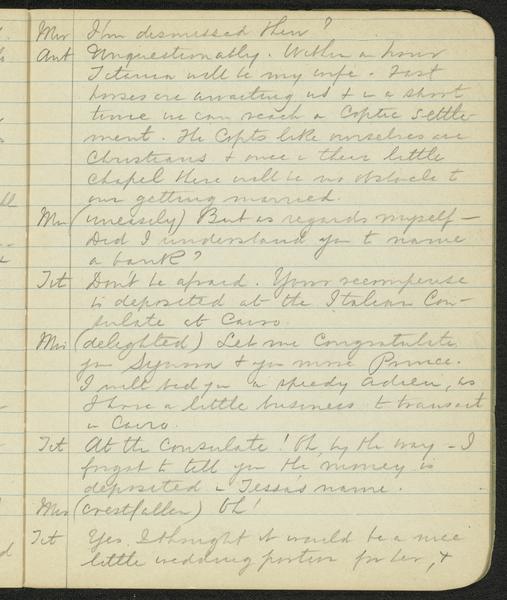 Mir I'm dismissed then?
Ant Unquestionably. Within an hour
Titania will be my wife. Fast
horses are awaiting us & in a short
time we can reach a Coptic settle-
ment. The Copts like ourselves are
Christians & once in their little
chapel there will be no obstacle to
our getting married.
Mir (uneasily) But as regards myself—
Did I understand you to name
a bank?
Tit Don't be afraid. Your recompense
is deposited at the Italian Con-
sulate at Cairo.
Mir (delighted) Let me congratulate
you Signora & you more Prince.
I will bid you a speedy adieu, as
I have a little business to transact
in Cairo.
Tit At the Consulate! Oh, by the way – I
forgot to tell you the money is
deposited in Tessa's name.
Mir (crestfallen) Oh!
Tit Yes, I thought it would be a nice
little wedding portion for her, &